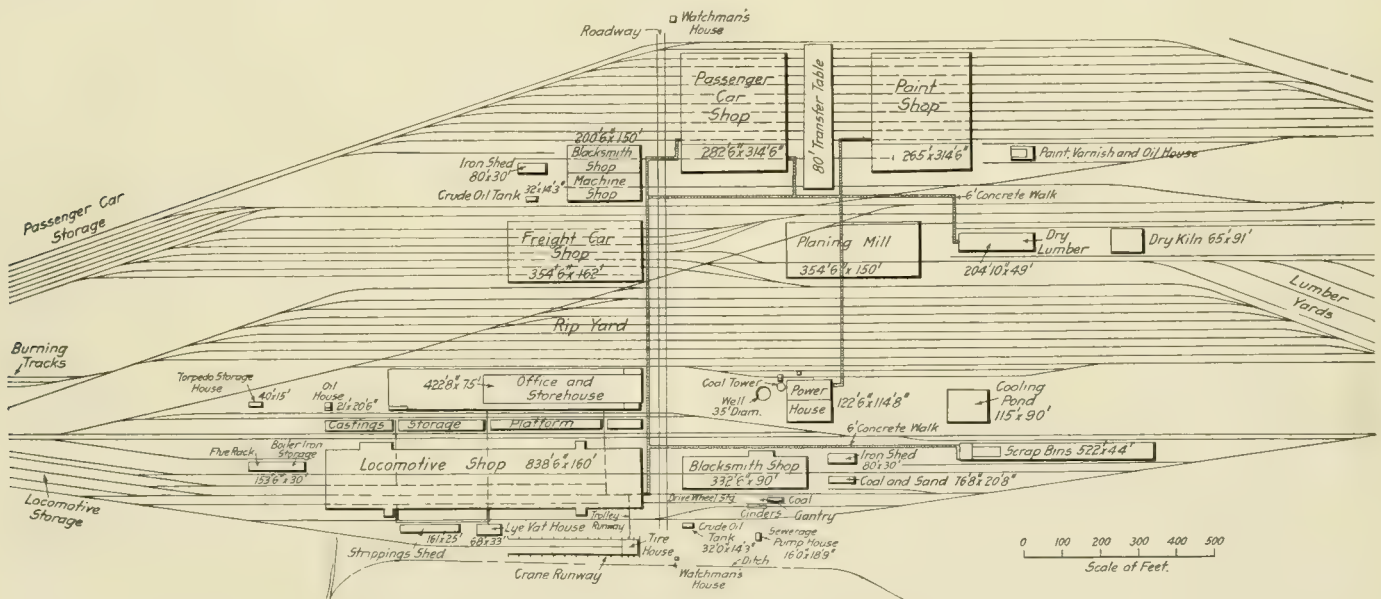 Watchman's
House
Roadway
Passenger
Car
Shop
282'6"x314'6"
80' Transfer Table
Paint
Shop
265'x314'6"
Paint, Varnish and Oil House
200'6"x150'
Blacksmith
Shop
Machine
Shop
Iron Shed
80'x30'
Crude Oil Tank
32'x14'3"
6' Concrete Walk
Passenger Car
Storage
Freight Car
Shop
354'6"x162'
Planing Mill
354'6"x150'
Dry
Lumber
204'10"x49'
Dry Kiln 65'x91'
Lumber
Yards
Rip Yard
Burning
Tracks
Torpedo Storage
House
40'x15'
Oil
House
21'x20'6"
422'8"x75'
Office and
Storehouse
Coal Tower
Well
35' Diam.
Power
House
122'6"x114'8"
Cooling
Pond
115'x90'
Castings
Storage
Platform
6' Concrete Walk
Flue Rack
Boiler Iron
Storage
153'6"x30'
Locomotive Shop 838'6"x160'
Blacksmith Shop
332'6"x90'
Iron Shed
80'x30'
Scrap Bins 522'x44'
Coal and Sand 76'8"x20'8"
Locomotive
Storage
Drive Wheel Stg.
Coal
Cinders
Gantry
161'x25'
Strippings Shed
68'x33'
Lye Vat House
Trolley
Runway
Tire
House
Crane Runway
Crude Oil
Tank
32'0"x14'3"
Sewerage
Pump House
16'0"x18'9"
Ditch
Watchman's
House
0 100 200 300 400 500
Scale of Feet.